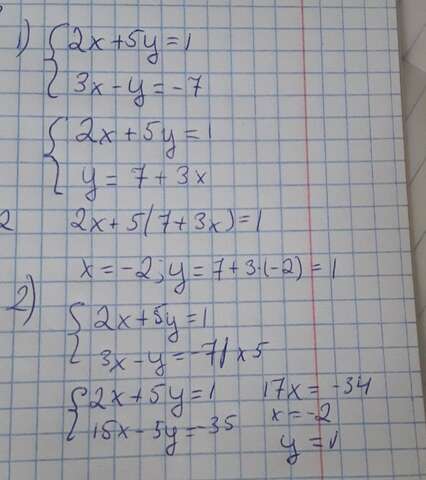 1) { 2x+5y=1
3x-y=-7
{ 2x+5y=1
y=7+3x
2 2x+5(7+3x)=1
x=-2; y=7+3·(-2)=1
2) { 2x+5y=1
3x-y=-7 | x5
{ 2x+5y=1 17x=-34
15x-5y=-35 x=-2
y=1